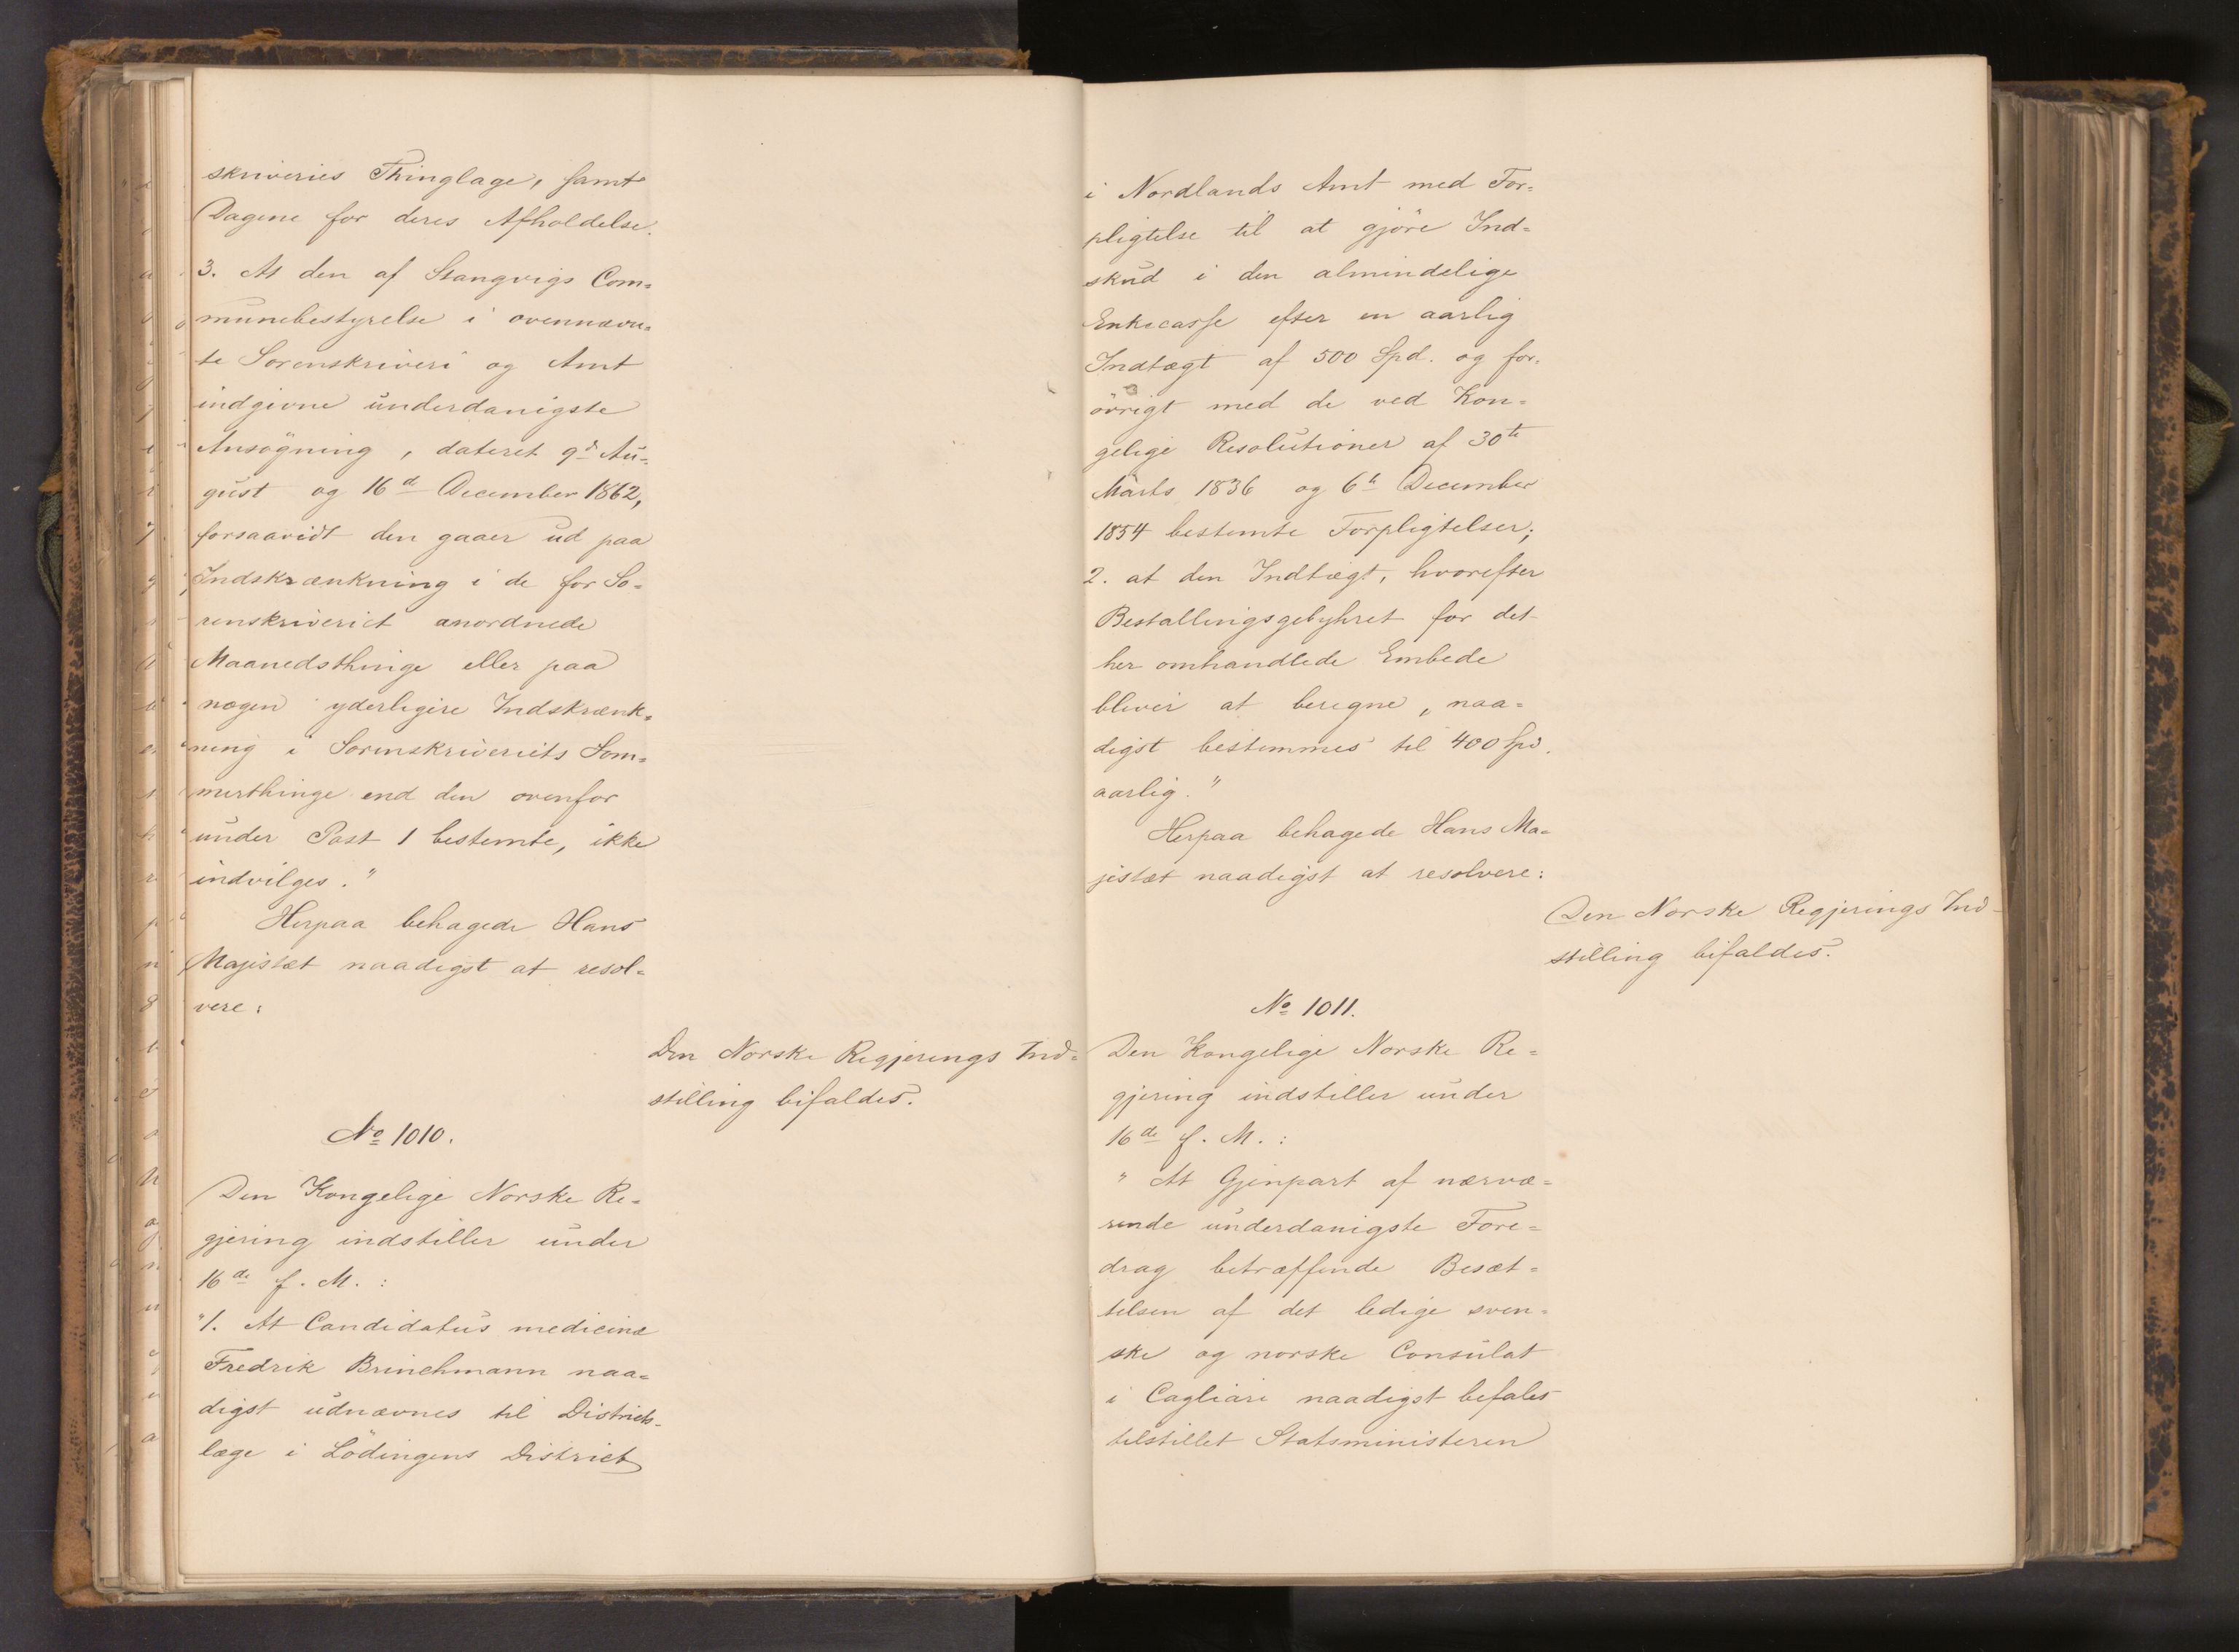 skriveries Thinglage, samt
Dagene for deres Afholdelse.
3. At den af Stangvigs Com=
munebestyrelse i ovennævn=
te Sorenskriveri og Amt
indgivne underdanigste
Ansögning, dateret 9d Au=
gust og 16d December 1862,
forsaavidt den gaaer ud paa
Indskrænkning i de for So=
renskriveriet anordnede
Maanedsthinge eller paa
nogen yderligere Indskrænk=
ning i Sorenskriveriets Som=
merthinge end den ovenfor
under Post 1 bestemte, ikke
indvilges."
Herpaa behagede Hans
Majestæt naadigst at resol=
vere:
Den Norske Regjerings Ind=
stilling bifaldes.
No 1010.
Den Kongelige Norske Re=
gjering indstiller under
16de f. M.:
"1. At Candidatus medicinæ
Fredrik Brinchmann naa=
digst udnævnes til Districts=
læge i Lödingens District
i Nordlands Amt med For=
pligtelse til at gjöre Ind=
skud i den almindelige
Enkecasse efter en aarlig
Indtægt af 500 Spd. og for=
övrigt med de ved Kon=
gelige Resolutioner af 30te
Marts 1836 og 6te December
1854 bestemte Forpligtelser;
2. at den Indtægt, hvorefter
Bestallingsgebyhret for det
her omhandlede Embede
bliver at beregne, naa=
digst bestemmes til 400 Spd.
aarlig."
Herpaa behagede Hans Ma=
jestæt naadigst at resolvere:
Den Norske Regjerings Ind=
stilling bifaldes.
No 1011.
Den Kongelige Norske Re=
gjering indstiller under
16de f. M.:
"At Gjenpart af nærvæ=
rende underdanigste Fore=
drag betræffende Besæt=
telsen af det ledige sven=
ske og norske Consulat
i Cagliari naadigst befales
tilstillet Statsministeren